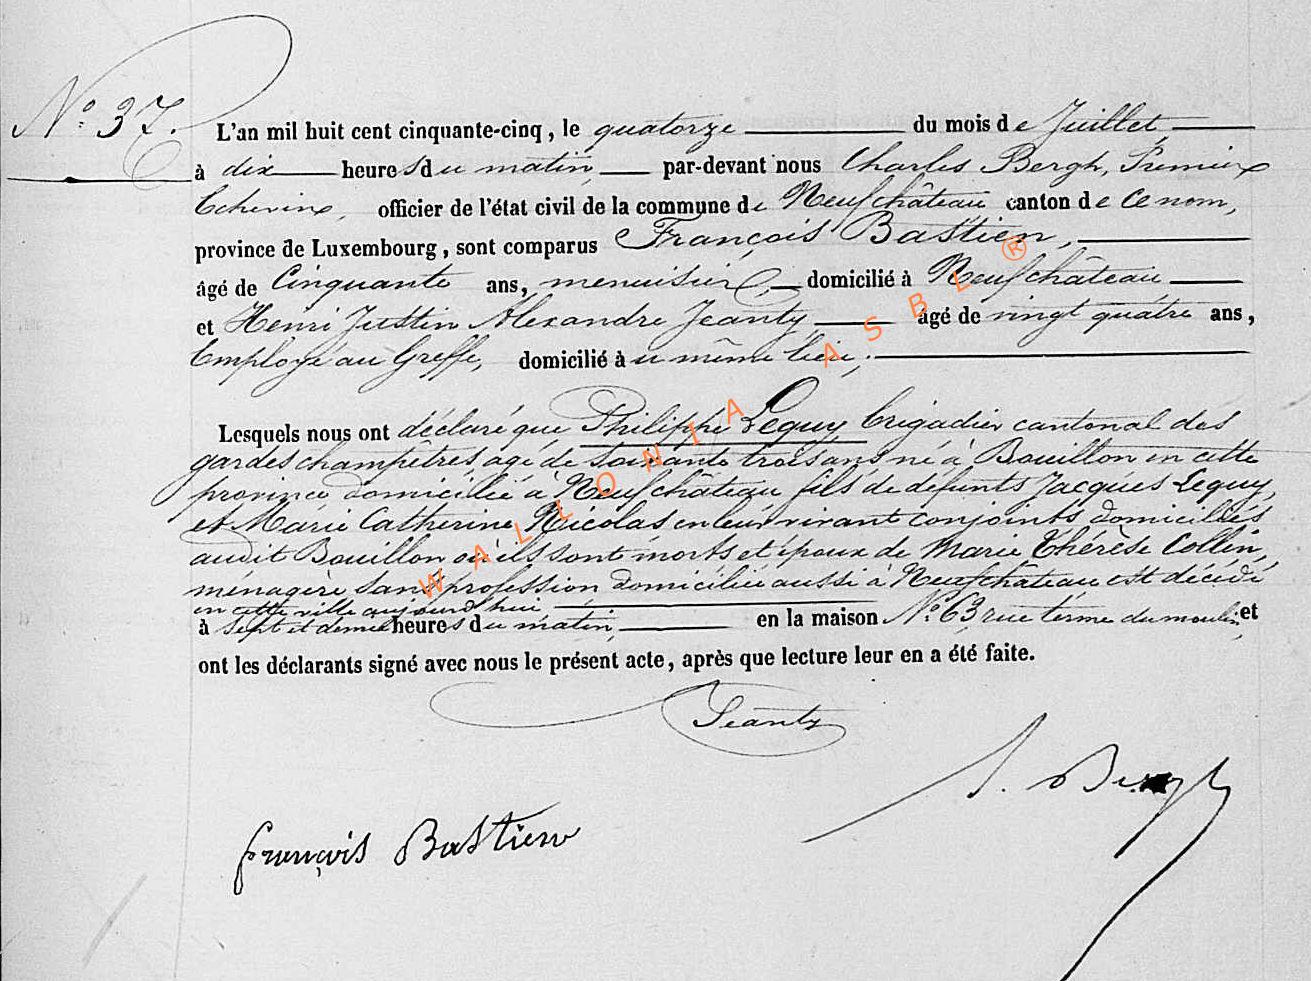 N° 37.
L'an mil huit cent cinquante-cinq, le quatorze du mois de Juillet,
à dix heures du matin, par-devant nous Charles Bergh, Premier
Echevin, officier de l'état civil de la commune de Neufchâteau canton de ce nom,
province de Luxembourg, sont comparus François Bastien,
âgé de Cinquante ans, menuisier, domicilié à Neufchâteau
et Henri Justin Alexandre Jeanty, âgé de vingt quatre ans,
Employé au Greffe, domicilié au même lieu;
Lesquels nous ont déclaré que Philippe Leguy brigadier cantonal des
gardes champêtres agé de soixante trois ans né à Bouillon en cette
province domicilié à Neufchâteau fils de défunts Jacques Leguy,
et Marie Catherine Nicolas en leur vivant conjoints domiciliés
audit Bouillon où ils sont morts et époux de Marie Thérèse Collin,
ménagère sans profession domiciliée aussi à Neufchâteau est décédé
en cette ville aujourd'hui
à sept et demie heures du matin, en la maison N° 63 rue terme du moulin, et
ont les déclarants signé avec nous le présent acte, après que lecture leur en a été faite.
Jeanty
Bergh
françois Bastien
WALLONIA ASBL ®